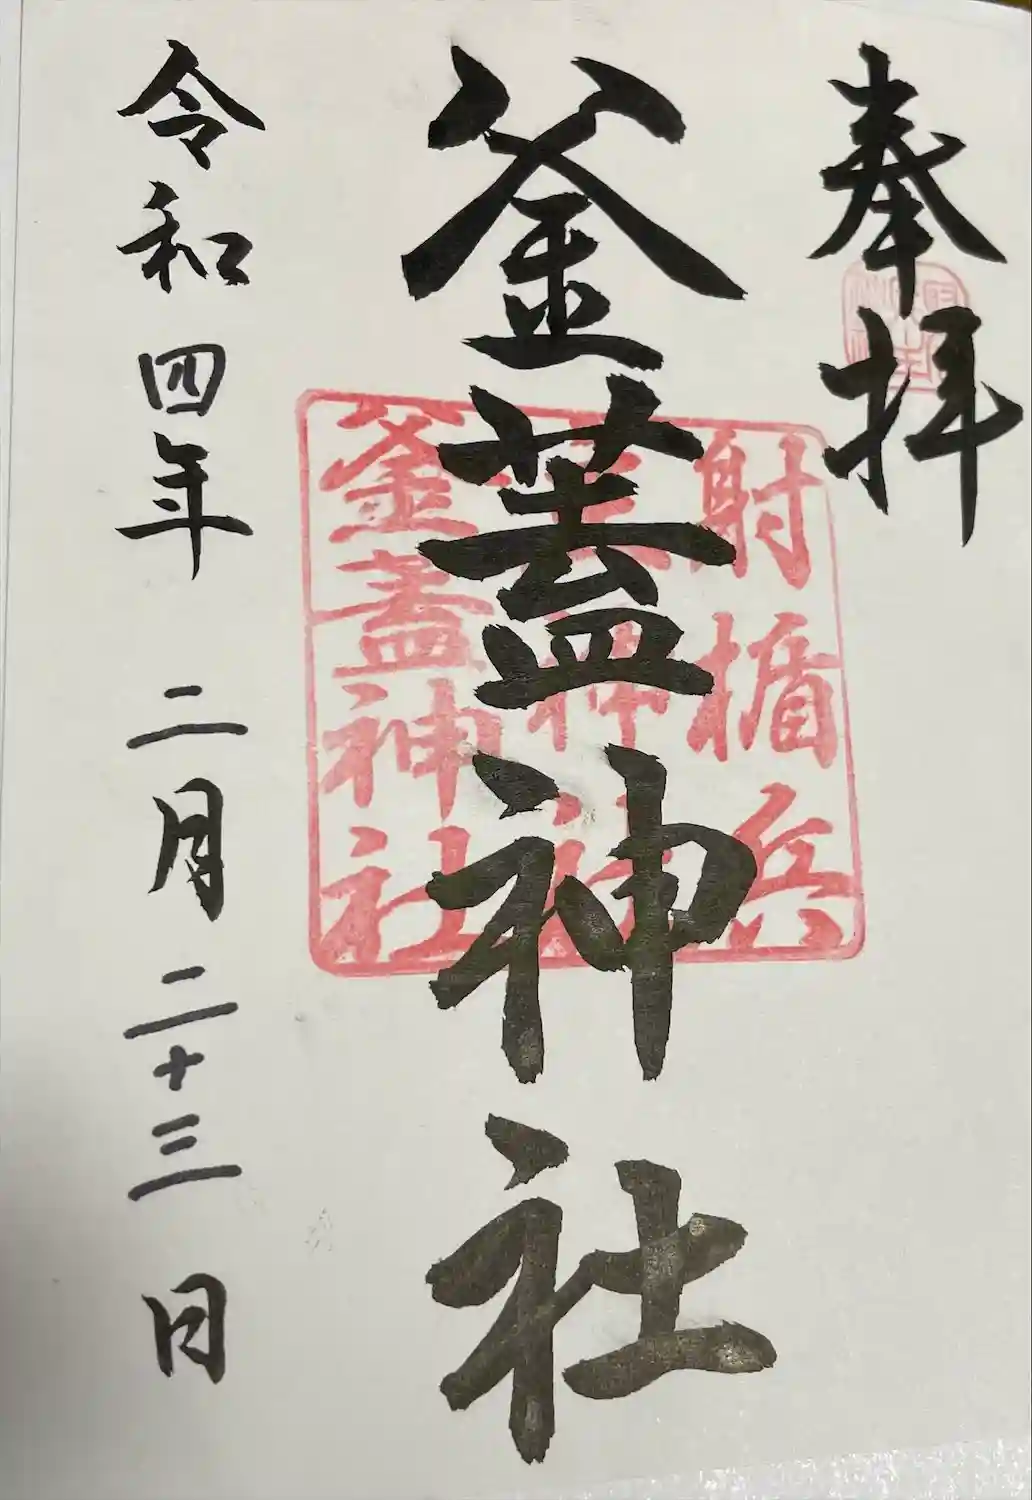 奉拝
釜蓋神社
射楯兵
釜蓋神社
令和四年 二月二十三日